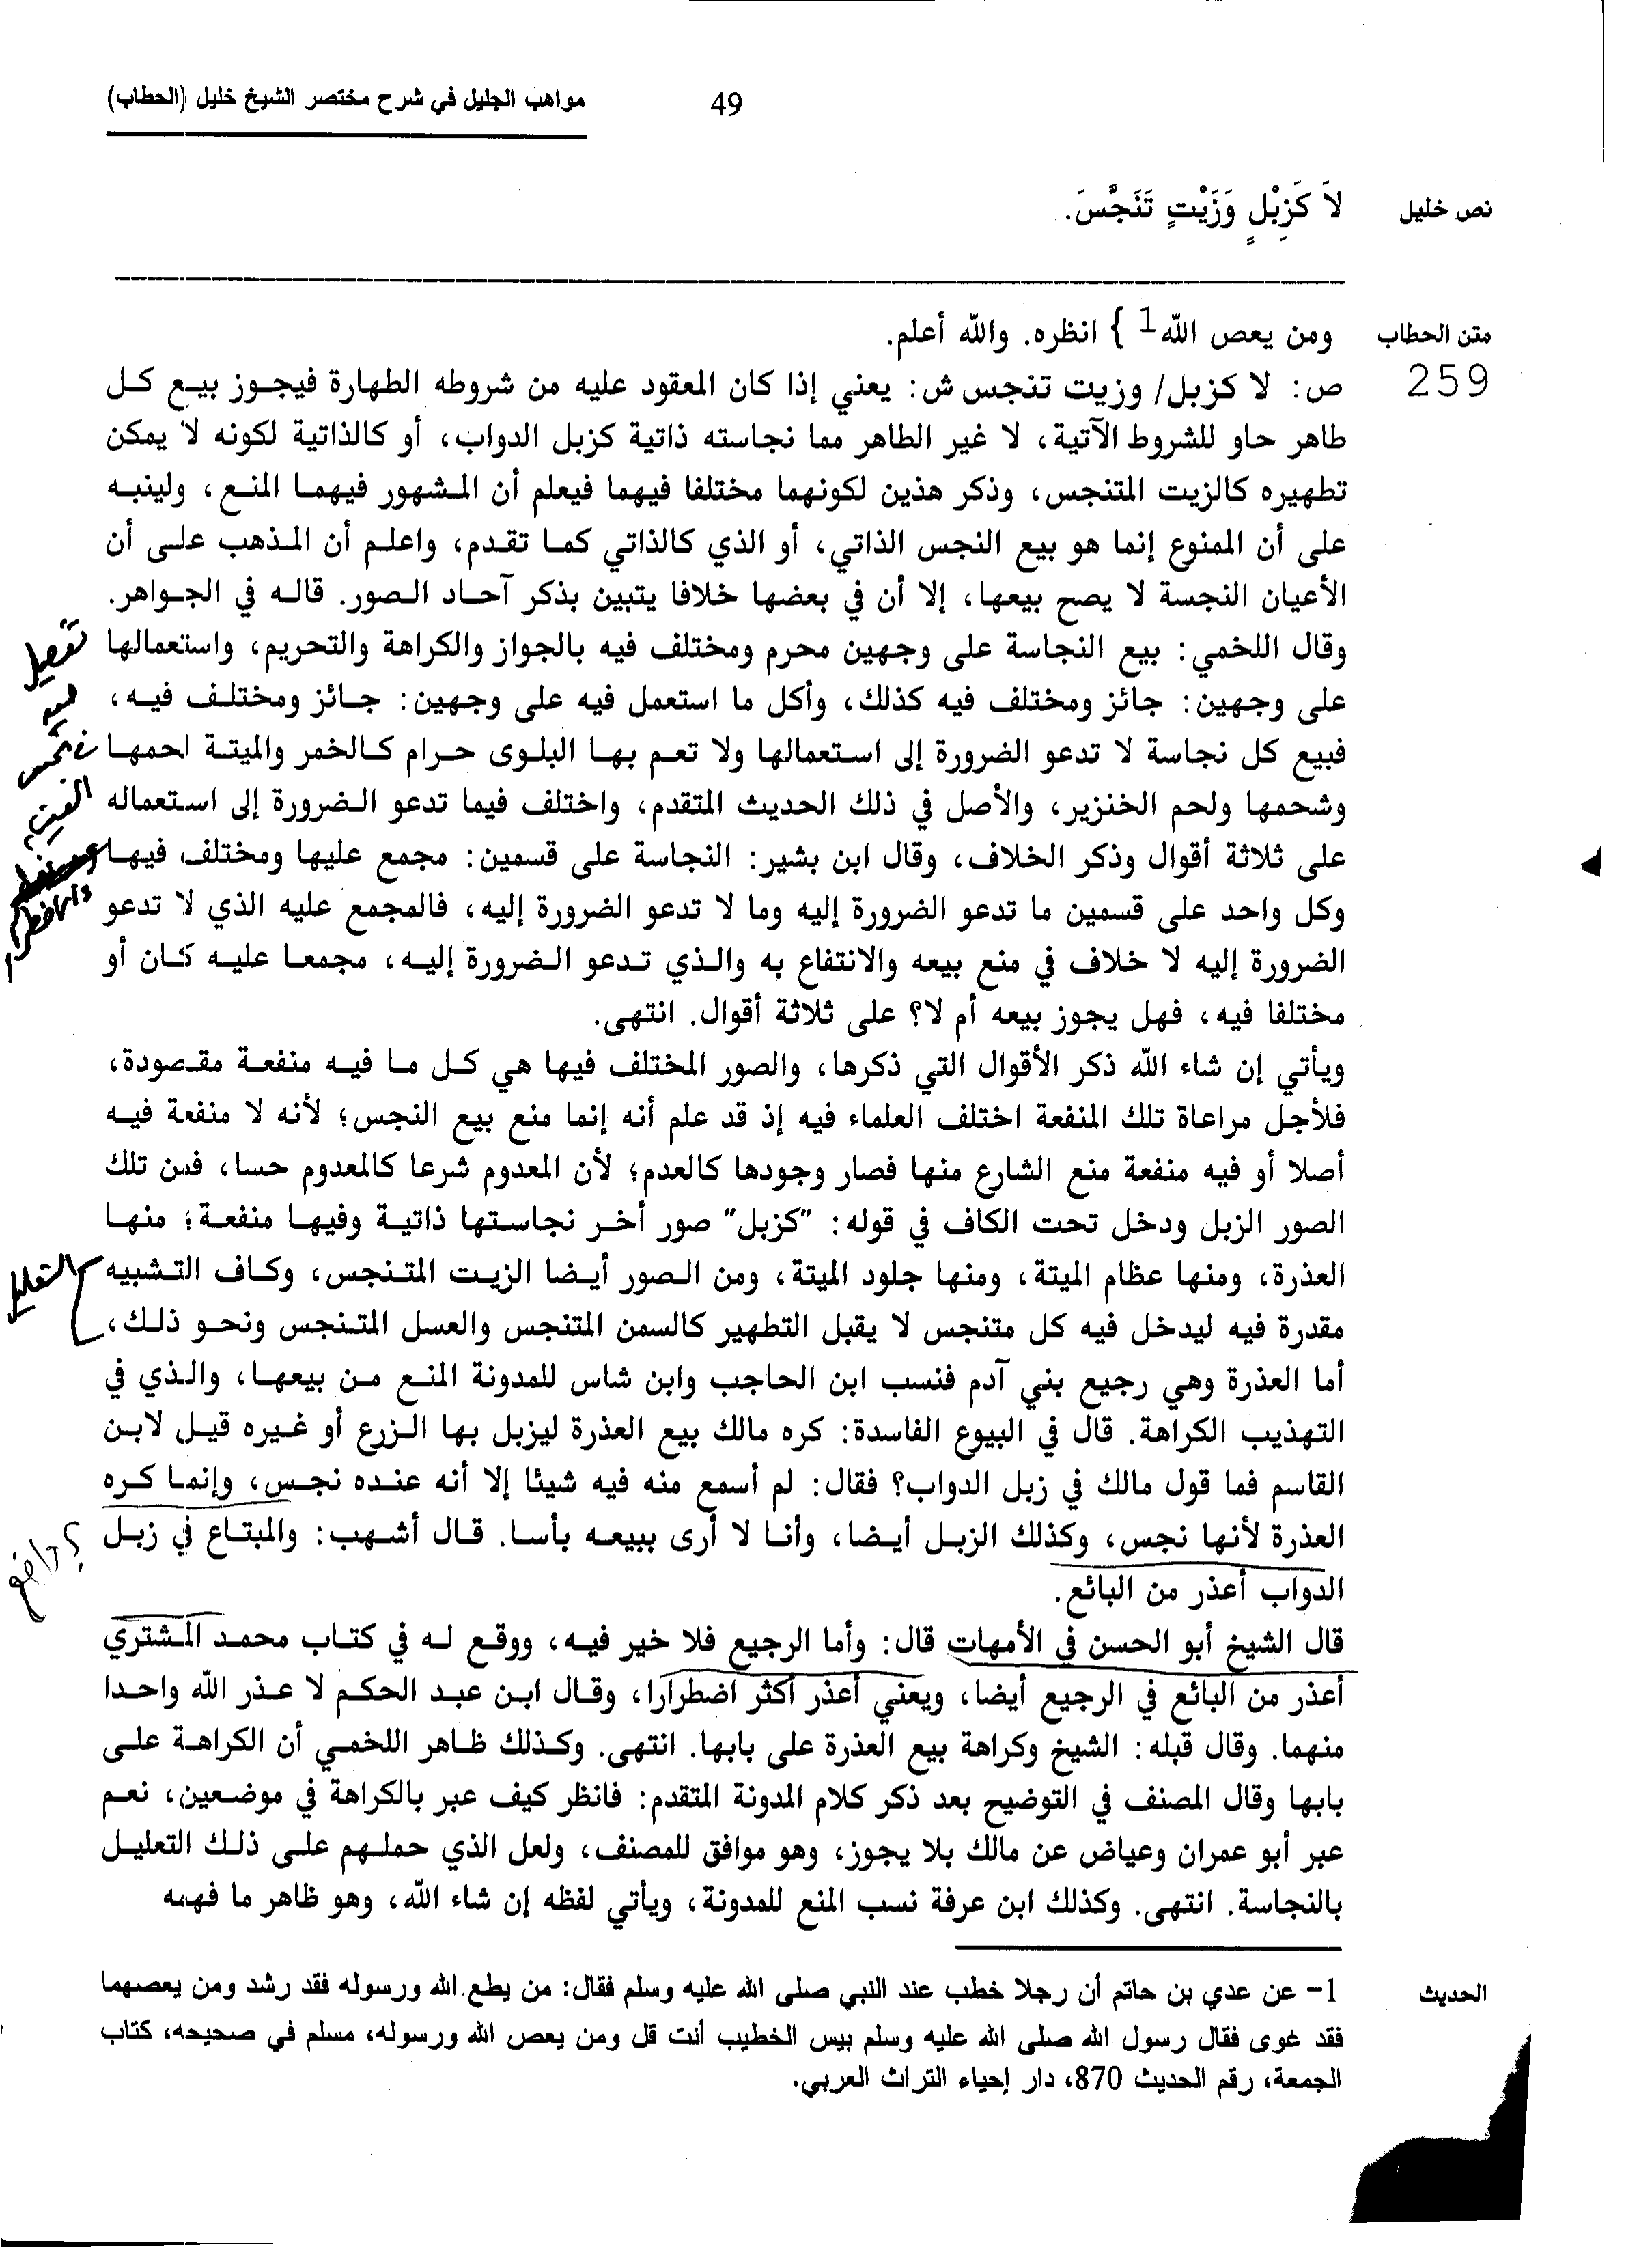 مواهب الجليل في شرح مختصر الشيخ خليل (الحطاب)
49
نص خليل
لاَ كَزِبْلٍ وَزَيْتٍ تَنَجَّسَ.
متن الحطاب
ومن يعص الله1 } انظره. والله أعلم.
259
ص: لا كزبل/ وزيت تنجس ش: يعني إذا كان المعقود عليه من شروطه الطهارة فيجوز بيع كل
طاهر حاو للشروط الآتية، لا غير الطاهر مما نجاسته ذاتية كزبل الدواب، أو كالذاتية لكونه لا يمكن
تطهيره كالزيت المتنجس، وذكر هذين لكونهما مختلفا فيهما فيعلم أن المشهور فيهما المنع، ولينبه
على أن الممنوع إنما هو بيع النجس الذاتي، أو الذي كالذاتي كما تقدم، واعلم أن المذهب على أن
الأعيان النجسة لا يصح بيعها، إلا أن في بعضها خلافا يتبين بذكر آحاد الصور. قاله في الجواهر.
وقال اللخمي: بيع النجاسة على وجهين محرم ومختلف فيه بالجواز والكراهة والتحريم، واستعمالها
على وجهين: جائز ومختلف فيه كذلك، وأكل ما استعمل فيه على وجهين: جائز ومختلف فيه،
فبيع كل نجاسة لا تدعو الضرورة إلى استعمالها ولا تعم بها البلوى حرام كالخمر والميتة لحمها
وشحمها ولحم الخنزير، والأصل في ذلك الحديث المتقدم، واختلف فيما تدعو الضرورة إلى استعماله
على ثلاثة أقوال وذكر الخلاف، وقال ابن بشير: النجاسة على قسمين: مجمع عليها ومختلف فيها
وكل واحد على قسمين ما تدعو الضرورة إليه وما لا تدعو الضرورة إليه، فالمجمع عليه الذي لا تدعو
الضرورة إليه لا خلاف في منع بيعه والانتفاع به والذي تدعو الضرورة إليه، مجمعا عليه كان أو
مختلفا فيه، فهل يجوز بيعه أم لا؟ على ثلاثة أقوال. انتهى.
ويأتي إن شاء الله ذكر الأقوال التي ذكرها، والصور المختلف فيها هي كل ما فيه منفعة مقصودة،
فلأجل مراعاة تلك المنفعة اختلف العلماء فيه إذ قد علم أنه إنما منع بيع النجس؛ لأنه لا منفعة فيه
أصلا أو فيه منفعة منع الشارع منها فصار وجودها كالعدم؛ لأن المعدوم شرعا كالمعدوم حسا، فمن تلك
الصور الزبل ودخل تحت الكاف في قوله: "كزبل" صور أخر نجاستها ذاتية وفيها منفعة؛ منها
العذرة، ومنها عظام الميتة، ومنها جلود الميتة، ومن الصور أيضا الزيت المتنجس، وكاف التشبيه
التعليل
مقدرة فيه ليدخل فيه كل متنجس لا يقبل التطهير كالسمن المتنجس والعسل المتنجس ونحو ذلك،
أما العذرة وهي رجيع بني آدم فنسب ابن الحاجب وابن شاس للمدونة المنع من بيعها، والذي في
التهذيب الكراهة. قال في البيوع الفاسدة: كره مالك بيع العذرة ليزبل بها الزرع أو غيره قيل لابن
القاسم فما قول مالك في زبل الدواب؟ فقال: لم أسمع منه فيه شيئا إلا أنه عنده نجس، وإنما كره
العذرة لأنها نجس، وكذلك الزبل أيضا، وأنا لا أرى ببيعه بأسا. قال أشهب: والمبتاع في زبل
الدواب أعذر من البائع.
قال الشيخ أبو الحسن في الأمهات قال: وأما الرجيع فلا خير فيه، ووقع له في كتاب محمد المشتري
أعذر من البائع في الرجيع أيضا، ويعني أعذر أكثر اضطرارا، وقال ابن عبد الحكم لا عذر الله واحدا
منهما. وقال قبله: الشيخ وكراهة بيع العذرة على بابها. انتهى. وكذلك ظاهر اللخمي أن الكراهة على
بابها وقال المصنف في التوضيح بعد ذكر كلام المدونة المتقدم: فانظر كيف عبر بالكراهة في موضعين، نعم
عبر أبو عمران وعياض عن مالك بلا يجوز، وهو موافق للمصنف، ولعل الذي حملهم على ذلك التعليل
بالنجاسة. انتهى. وكذلك ابن عرفة نسب المنع للمدونة، ويأتي لفظه إن شاء الله، وهو ظاهر ما فهمه
الحديث
1- عن عدي بن حاتم أن رجلا خطب عند النبي صلى الله عليه وسلم فقال: من يطع الله ورسوله فقد رشد ومن يعصهما
فقد غوى فقال رسول الله صلى الله عليه وسلم بيس الخطيب أنت قل ومن يعص الله ورسوله، مسلم في صحيحه، كتاب
الجمعة، رقم الحديث 870، دار إحياء التراث العربي.